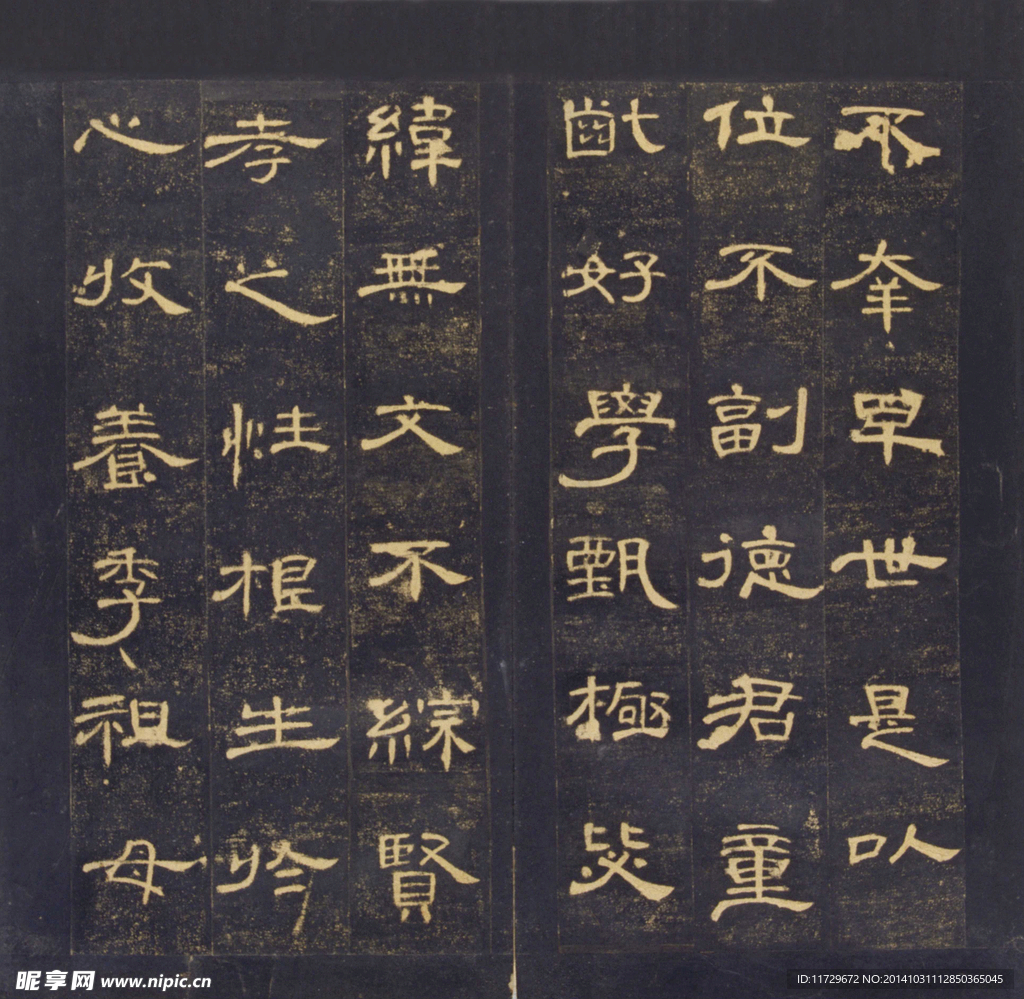 不幸早世是以
位不副德君童
齔好學甄極毖
緯無文不綜賢
孝之性根生於
心收養季祖母
昵享网 www.nipic.cn
ID:11729672 NO:20141031112850365045